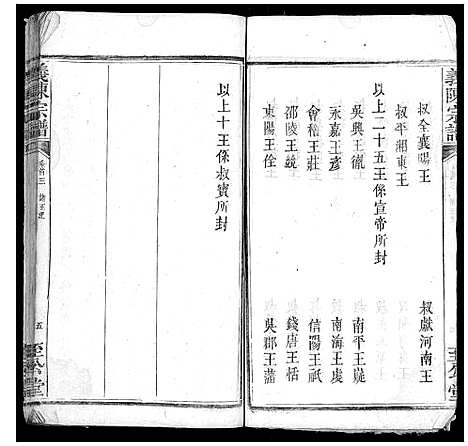 義陳宗譜
至公堂
叔全襄陽王
叔獻河南王
叔平湘東王
以上二十五王係宣帝所封
吳興王胤
南平王嶷
永嘉王彥
南海王虔
會稽王莊
信陽王祇
邵陵王兢
錢唐王恬
東陽王佺
吳郡王藩
以上十王係叔寶所封
義陳宗譜
卷首三
五
至公堂